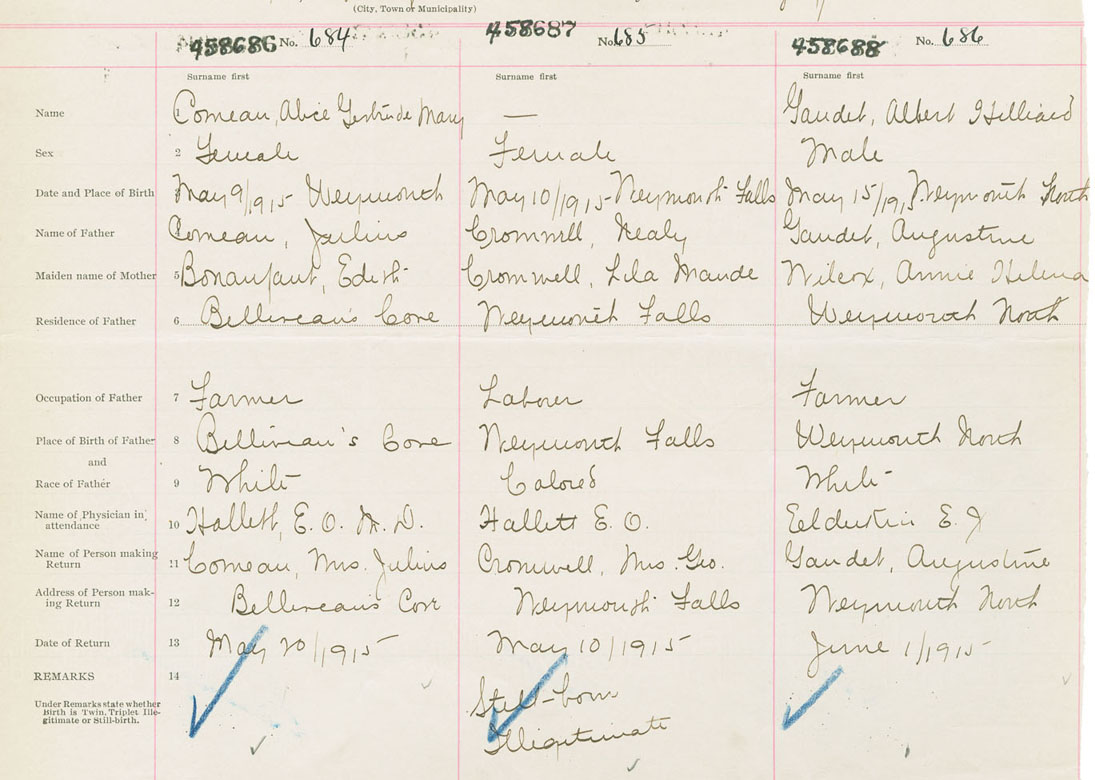 (City, Town or Municipality)
458686 No. 684 458687 No. 685 458688 No. 686
Surname first Surname first Surname first
Name 1 Comeau, Alice Gertrude Mary — Gaudet, Albert Hilliard
Sex 2 Female Female Male
Date and Place of Birth 3 May 9/1915 Weymouth May 10/1915 Weymouth Falls May 15/1915 Weymouth North
Name of Father 4 Comeau, Julius Cromwell, Nealy Gaudet, Augustine
Maiden name of Mother 5 Bonaufaut, Edith Cromwell, Lila Maude Wilcox, Annie Helena
Residence of Father 6 Belliveau's Cove Weymouth Falls Weymouth North
Occupation of Father 7 Farmer Laborer Farmer
Place of Birth of Father 8 Belliveau's Cove Weymouth Falls Weymouth North
and
Race of Father 9 White Colored White
Name of Physician in attendance 10 Hallett, E. O. M. D. Hallett E. O. E. J
Name of Person making Return 11 Comeau, Mrs. Julius Cromwell, Mrs. Geo. Gaudet, Augustine
Address of Person making Return 12 Belliveau's Cove Weymouth Falls Weymouth North
Date of Return 13 May 20/1915 May 10/1915 June 1/1915
REMARKS 14 Still-born
Under Remarks state whether Birth is Twin, Triplet Illegitimate or Still-birth. Illegitimate